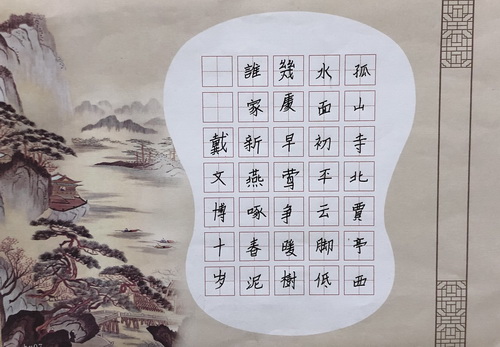 孤山寺北賈亭西
水面初平云脚低
幾處早莺争暖樹
誰家新燕啄春泥
戴文博十岁